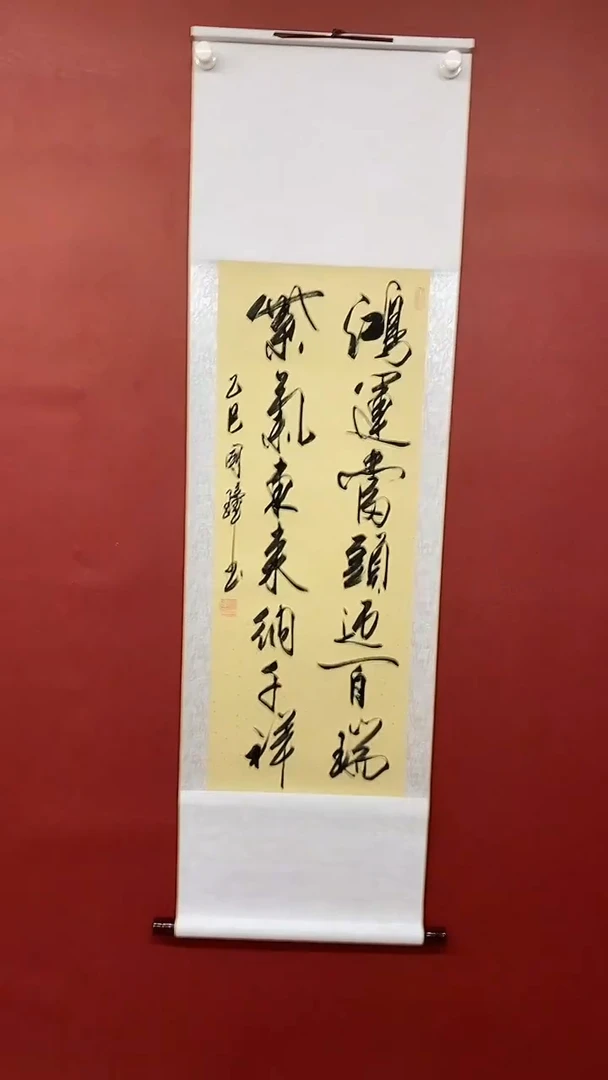 鴻運當頭迎百瑞
紫氣東來納千祥
乙巳國瑋书